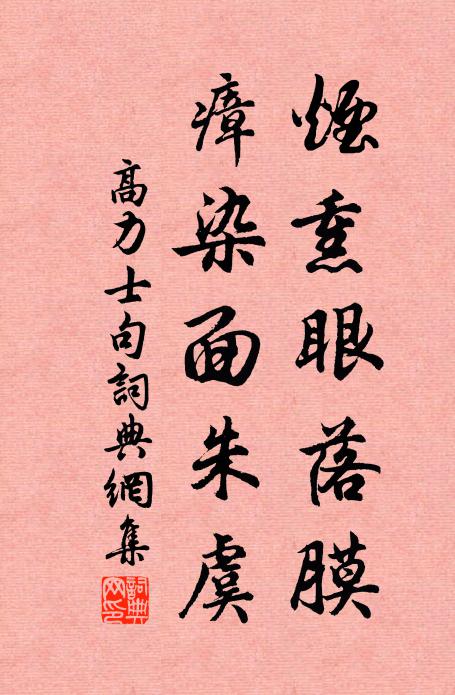 煙熏眼落膜
瘴染面朱虞
高力士句詞典網集
詞典网色